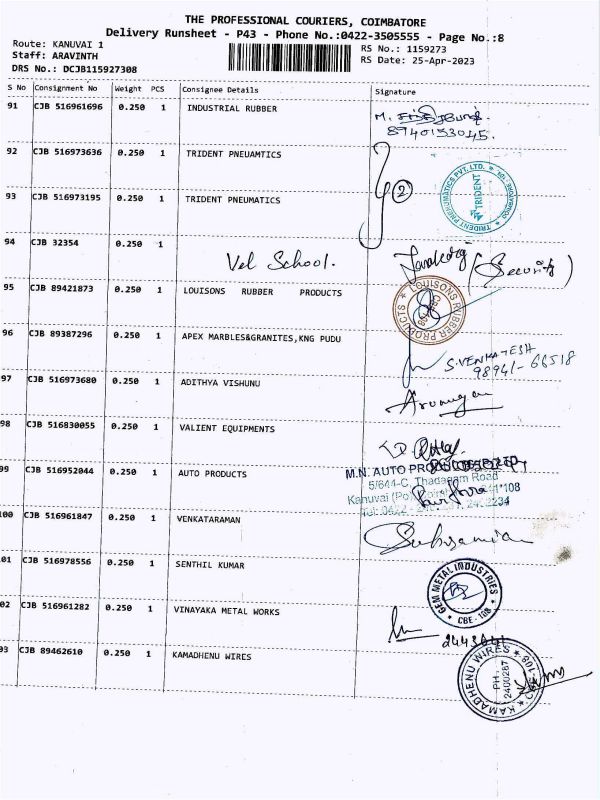 THE PROFESSIONAL COURIERS, COIMBATORE
Delivery Runsheet - P43 - Phone No.:0422-3505555 - Page No.:8
Route: KANUVAI 1
RS No.: 1159273
Staff: ARAVINTH
RS Date: 25-Apr-2023
DRS No.: DCJB115927308
S No Consignment No Weight PCS Consignee Details Signature
91 CJB 516961696 0.250 1 INDUSTRIAL RUBBER
8940153045.
92 CJB 516973636 0.250 1 TRIDENT PNEUAMTICS
2
TRIDENT PNEUMATICS PVT. LTD.
TRIDENT
93 CJB 516973195 0.250 1 TRIDENT PNEUMATICS
94 CJB 32354 0.250 1 Vel School.
(Security)
95 CJB 89421873 0.250 1 LOUISONS RUBBER PRODUCTS
LOUISONS RUBBER PRODUCTS
96 CJB 89387296 0.250 1 APEX MARBLES&GRANITES,KNG PUDU
S.VENKATESH
98941-66518
97 CJB 516973680 0.250 1 ADITHYA VISHUNU
Arumugam
98 CJB 516830055 0.250 1 VALIENT EQUIPMENTS
99 CJB 516952044 0.250 1 AUTO PRODUCTS
M.N. AUTO
5/644-C, Thadagam Road
Kanuvai (Po)
00 CJB 516961847 0.250 1 VENKATARAMAN
01 CJB 516978556 0.250 1 SENTHIL KUMAR
GEM METAL INDUSTRIES
CBE - 108
02 CJB 516961282 0.250 1 VINAYAKA METAL WORKS
03 CJB 89462610 0.250 1 KAMADHENU WIRES
KAMADHENU WIRES
PH: 2400287